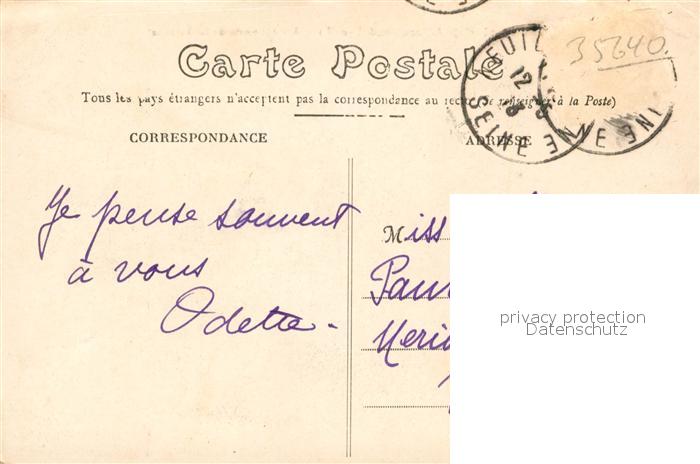 35640.
Carte Postale
Tous les pays étrangers n'acceptent pas la correspondance au recto (se renseigner à la Poste)
CORRESPONDANCE
ADRESSE
Je pense souvent
à vous
Odette.
Miss
privacy protection
Datenschutz
12
SEINE